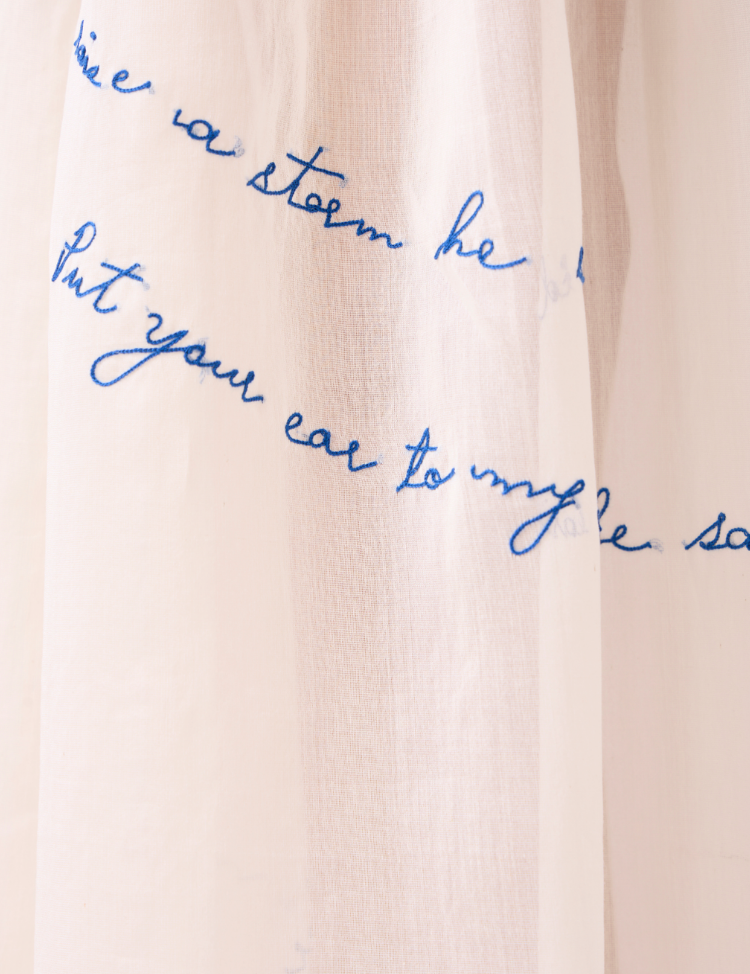 a storm he
Put your ear to my he sa